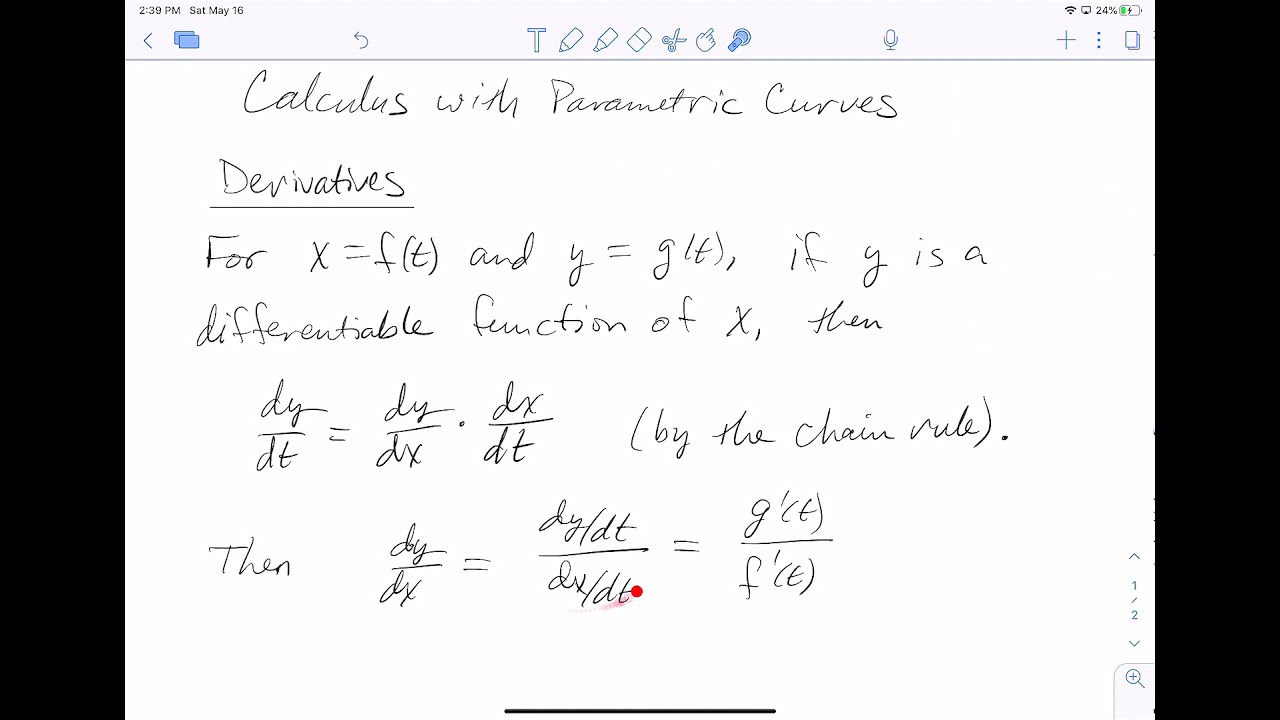 2:39 PM Sat May 16
24%
T
Calculus with Parametric Curves
Derivatives
For x = f(t) and y = g(t), if y is a
differentiable function of x, then
dy/dt = dy/dx · dx/dt (by the chain rule).
Then dy/dx = (dy/dt)/(dx/dt) = g'(t)/f'(t)
1
/
2